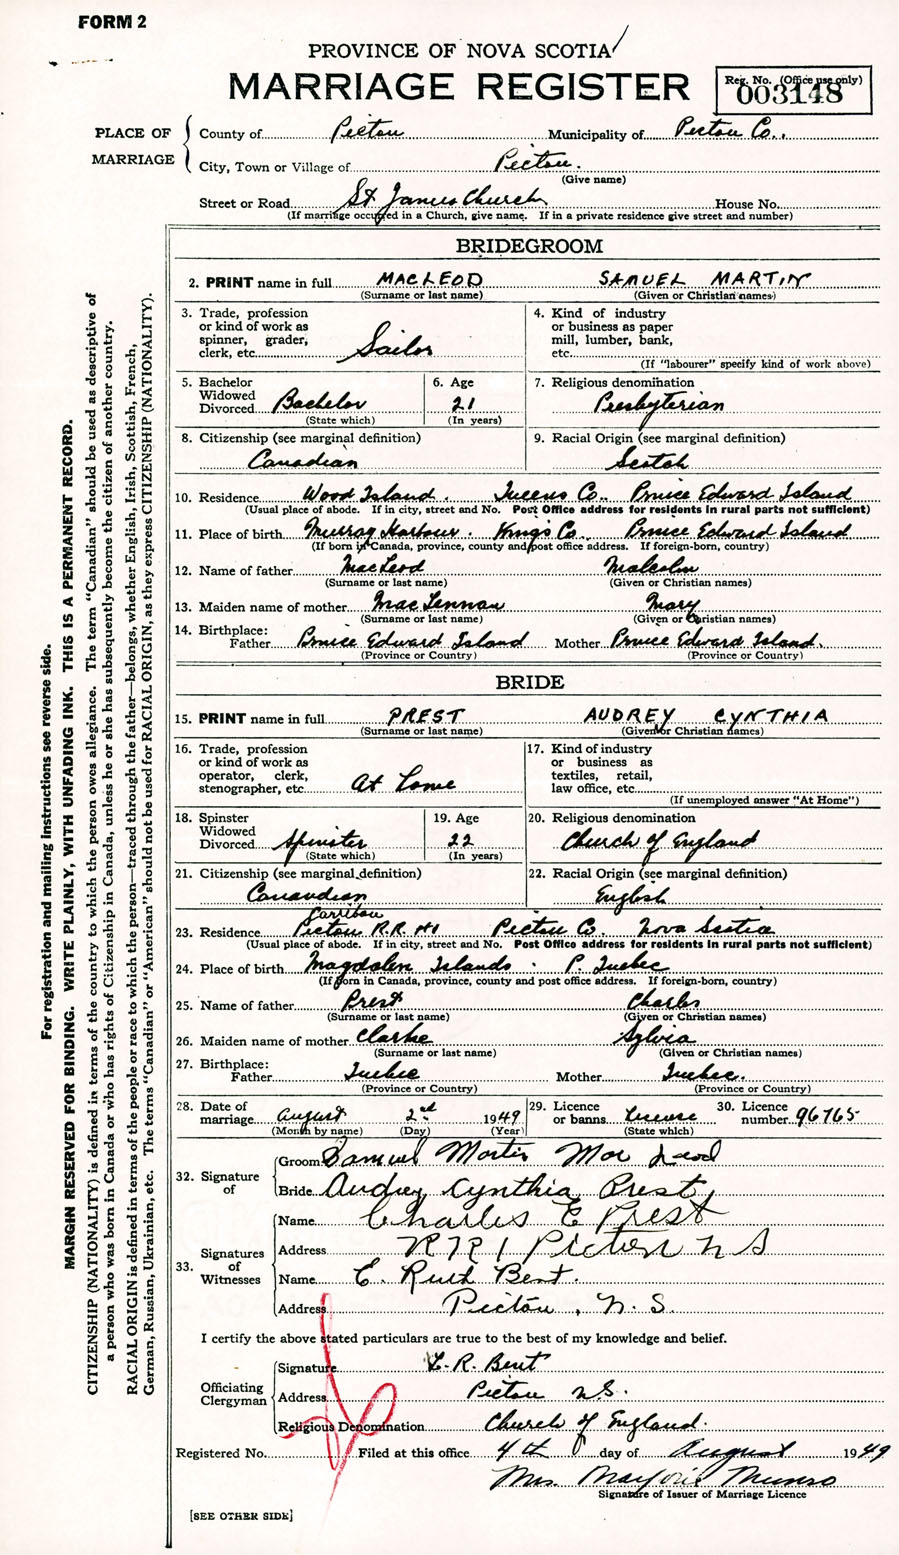 FORM 2
PROVINCE OF NOVA SCOTIA
MARRIAGE REGISTER
Reg. No. (Office use only)
003148
PLACE OF MARRIAGE
County of Pictou Municipality of Pictou Co.
City, Town or Village of Pictou.
(Give name)
Street or Road St James Church House No.
(If marriage occurred in a Church, give name. If in a private residence give street and number)
BRIDEGROOM
2. PRINT name in full MACLEOD SAMUEL MARTIN
(Surname or last name) (Given or Christian names)
3. Trade, profession or kind of work as spinner, grader, clerk, etc. Sailor
4. Kind of industry or business as paper mill, lumber, bank, etc.
(If "labourer" specify kind of work above)
5. Bachelor Widowed Divorced Bachelor
(State which)
6. Age 21
(In years)
7. Religious denomination
Presbyterian
8. Citizenship (see marginal definition)
Canadian
9. Racial Origin (see marginal definition)
Scotch
10. Residence Wood Island. Queens Co. Prince Edward Island
(Usual place of abode. If in city, street and No. Post Office address for residents in rural parts not sufficient)
11. Place of birth Murray Harbour. Kings Co. Prince Edward Island
(If born in Canada, province, county and post office address. If foreign-born, country)
12. Name of father MacLeod Malcolm
(Surname or last name) (Given or Christian names)
13. Maiden name of mother MacLennan Mary
(Surname or last name) (Given or Christian names)
14. Birthplace:
Father Prince Edward Island Mother Prince Edward Island.
(Province or Country) (Province or Country)
BRIDE
15. PRINT name in full PREST AUDREY CYNTHIA
(Surname or last name) (Given or Christian names)
16. Trade, profession or kind of work as operator, clerk, stenographer, etc. At Home
17. Kind of industry or business as textiles, retail, law office, etc.
(If unemployed answer "At Home")
18. Spinster Widowed Divorced Spinster
(State which)
19. Age 22
(In years)
20. Religious denomination
Church of England
21. Citizenship (see marginal definition)
Canaudian
22. Racial Origin (see marginal definition)
English
Carribou
23. Residence Pictou R.R. #1 Pictou Co. Nova Scotia
(Usual place of abode. If in city, street and No. Post Office address for residents in rural parts not sufficient)
24. Place of birth Magdalen Islands. P. Quebec
(If born in Canada, province, county and post office address. If foreign-born, country)
25. Name of father Prest Charles
(Surname or last name) (Given or Christian names)
26. Maiden name of mother Clarke Sylvia
(Surname or last name) (Given or Christian names)
27. Birthplace:
Father Quebec Mother Quebec.
(Province or Country) (Province or Country)
28. Date of marriage August 2nd 1949
(Month by name) (Day) (Year)
29. Licence or banns License
(State which)
30. Licence number 96765
32. Signature of
Groom Samuel Martin MacLeod
Bride Audrey Cynthia Prest
33. Signatures of Witnesses
Name Charles E Prest
Address RR1 Pictou NS
Name E. Ruth Bent.
Address Pictou, N.S.
I certify the above stated particulars are true to the best of my knowledge and belief.
Officiating Clergyman
Signature L.R. Bent
Address Pictou N.S.
Religious Denomination Church of England.
Registered No. Filed at this office 4th day of August 1949
Mrs. Marjorie Munro
Signature of Issuer of Marriage Licence
[SEE OTHER SIDE]
For registration and mailing instructions see reverse side.
MARGIN RESERVED FOR BINDING. WRITE PLAINLY, WITH UNFADING INK. THIS IS A PERMANENT RECORD.
CITIZENSHIP (NATIONALITY) is defined in terms of the country to which the person owes allegiance. The term "Canadian" should be used as descriptive of
a person who was born in Canada or who has rights of Citizenship in Canada, unless he or she has subsequently become the citizen of another country.
RACIAL ORIGIN is defined in terms of the people or race to which the person—traced through the father—belongs, whether English, Irish, Scottish, French,
German, Russian, Ukrainian, etc. The terms "Canadian" or "American" should not be used for RACIAL ORIGIN, as they express CITIZENSHIP (NATIONALITY).